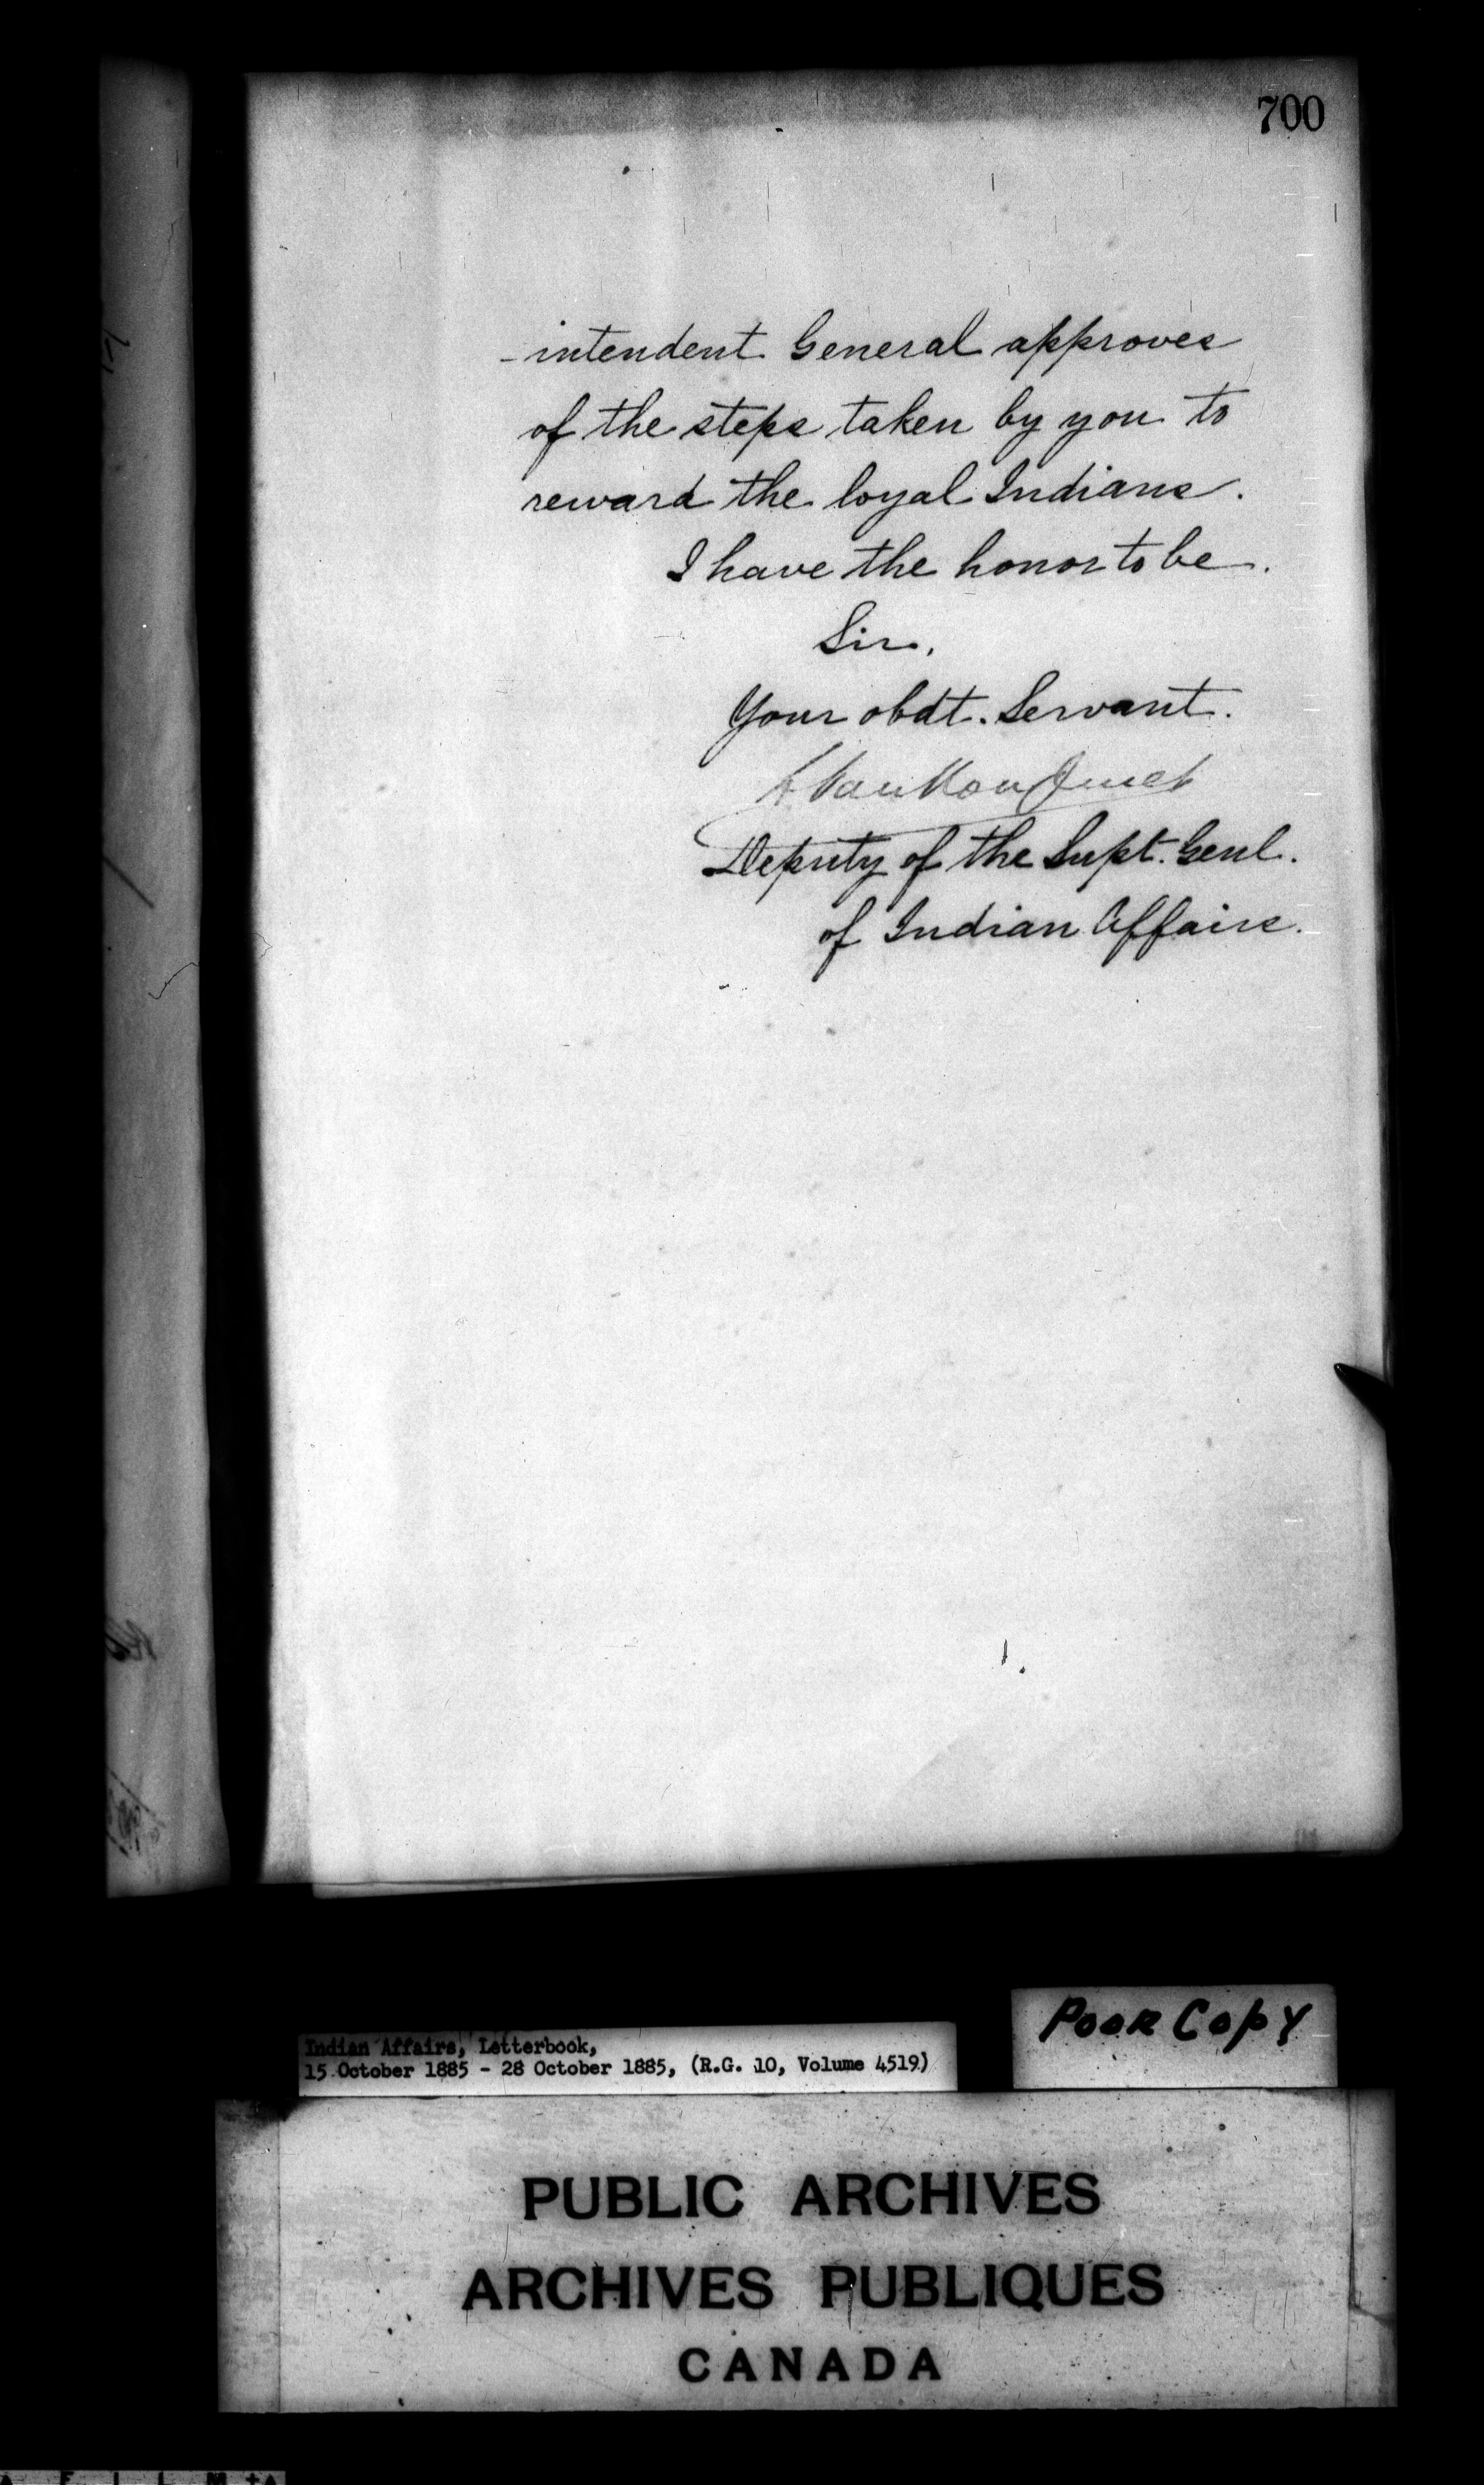 700
-intendent General approves
of the steps taken by you to
reward the loyal Indians.
I have the honor to be.
Sir,
Your obdt. Servant.
L VanKoughnet
Deputy of the Supt. Genl.
of Indian Affairs.
Poor Copy
Indian Affairs, Letterbook,
15 October 1885 - 28 October 1885, (R.G. 10, Volume 4519)
PUBLIC ARCHIVES
ARCHIVES PUBLIQUES
CANADA